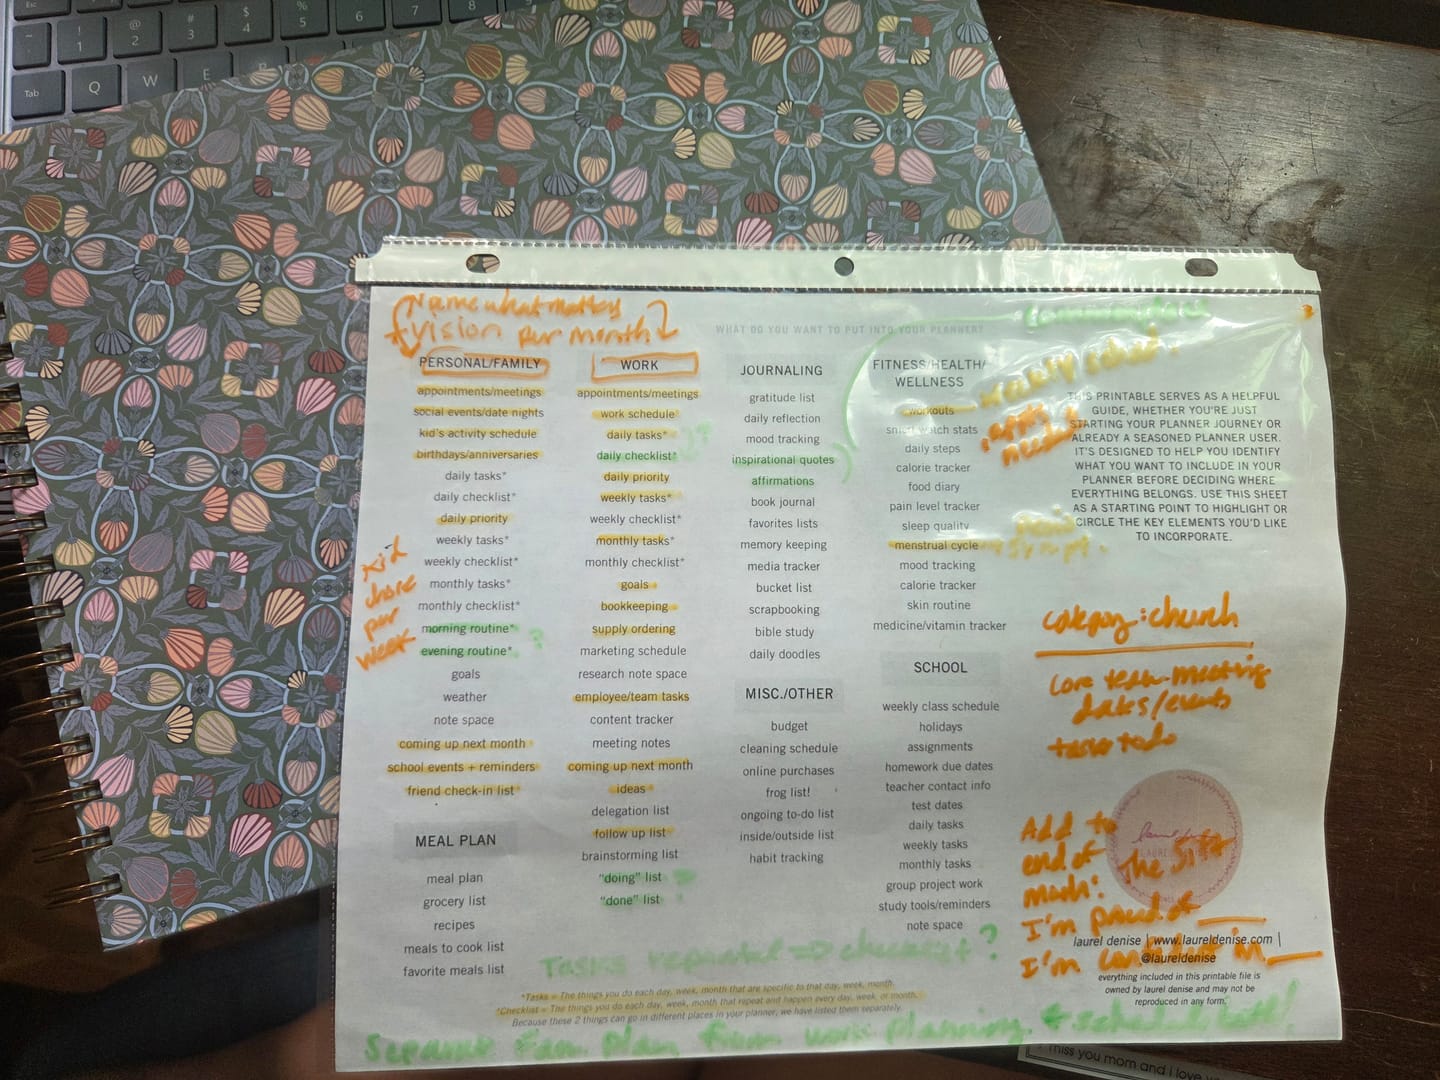 Esc
~ `
! 1
@ 2
# 3
$ 4
% 5
6
7
8
9
Tab
Q
W
E
R
Name what matters
vision per month
WHAT DO YOU WANT TO PUT INTO YOUR PLANNER?
PERSONAL/FAMILY
appointments/meetings
social events/date nights
kid's activity schedule
birthdays/anniversaries
daily tasks*
daily checklist*
daily priority
weekly tasks*
weekly checklist*
monthly tasks*
monthly checklist*
morning routine*
evening routine*
?
goals
weather
note space
coming up next month
school events + reminders
friend check-in list*
kid
chore
per
week
MEAL PLAN
meal plan
grocery list
recipes
meals to cook list
favorite meals list
WORK
appointments/meetings
work schedule
daily tasks*
daily checklist*
?
daily priority
weekly tasks*
weekly checklist*
monthly tasks*
monthly checklist*
goals
bookkeeping
supply ordering
marketing schedule
research note space
employee/team tasks
content tracker
meeting notes
coming up next month
ideas
delegation list
follow up list
brainstorming list
"doing" list
"done" list
JOURNALING
gratitude list
daily reflection
mood tracking
inspirational quotes
affirmations
book journal
favorites lists
memory keeping
media tracker
bucket list
scrapbooking
bible study
daily doodles
MISC./OTHER
budget
cleaning schedule
online purchases
frog list!
ongoing to-do list
inside/outside list
habit tracking
FITNESS/HEALTH/
WELLNESS
workouts
weekly sched.
smart watch stats
appts
needed
daily steps
calorie tracker
food diary
pain level tracker
sleep quality
menstrual cycle
mood tracking
calorie tracker
skin routine
medicine/vitamin tracker
SCHOOL
weekly class schedule
holidays
assignments
homework due dates
teacher contact info
test dates
daily tasks
weekly tasks
monthly tasks
group project work
study tools/reminders
note space
THIS PRINTABLE SERVES AS A HELPFUL
GUIDE, WHETHER YOU'RE JUST
STARTING YOUR PLANNER JOURNEY OR
ALREADY A SEASONED PLANNER USER.
IT'S DESIGNED TO HELP YOU IDENTIFY
WHAT YOU WANT TO INCLUDE IN YOUR
PLANNER BEFORE DECIDING WHERE
EVERYTHING BELONGS. USE THIS SHEET
AS A STARTING POINT TO HIGHLIGHT OR
CIRCLE THE KEY ELEMENTS YOU'D LIKE
TO INCORPORATE.
category: church
core team meeting
dates/events
tasks to do
Add to
end of
month:
The Sift
I'm proud of
I'm confident in
laurel denise | www.laureldenise.com |
@laureldenise
everything included in this printable file is
owned by laurel denise and may not be
reproduced in any form.
Tasks repeated => checklist?
*Tasks = The things you do each day, week, month that are specific to that day, week, month.
*Checklist = The things you do each day, week, month that repeat and happen every day, week, or month.
Because these 2 things can go in different places in your planner, we have listed them separately.
Separate Fam plan from work planning.
miss you mom and i love